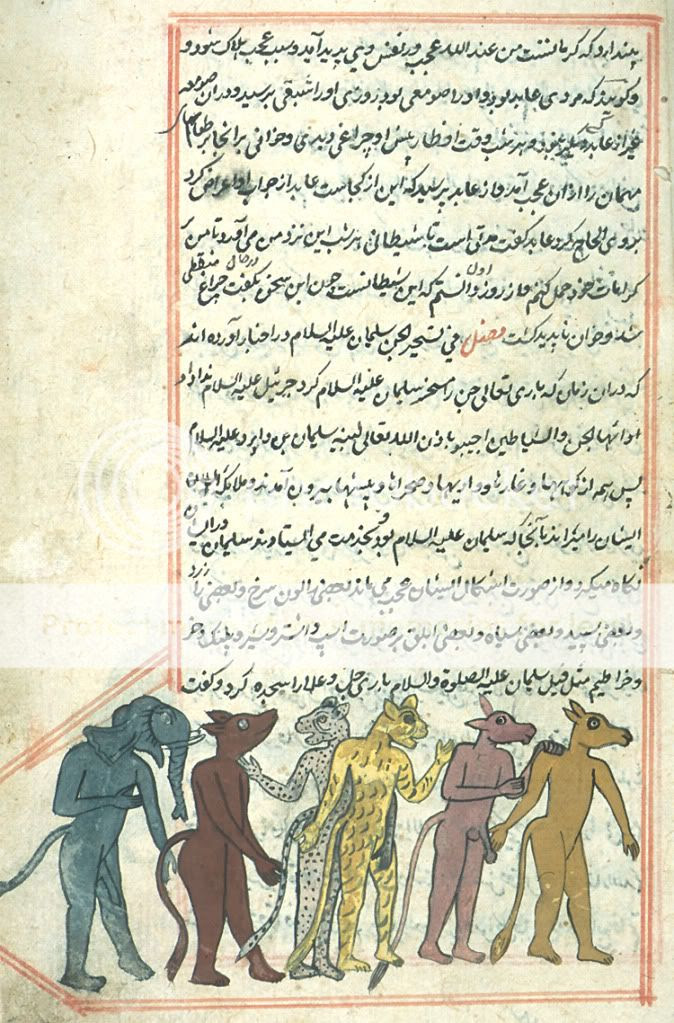 پندارد که کرامتست من عند الله عجب در نفس وی پدید آید و بسبب عجب هلاک شود و
و گویند که مردی عابد بود و او را صومعی بود روزی او را شبقی برسید و در آن صومعه
غیر از عابد کسی نبود و هر شب وقت افطار پیش او چراغی دیدی و خوانی بر آنجا بر طعام
مهمان را از آن عجب آمد و از عابد پرسید که این از کجاست عابد از جواب او اعراض کرد
بر وی الحاح کرد عابد گفت مدتی است تا شیطانی هر شب این نزد من می آورد تا من
کرامات خود حمل کنم و از روز اول دانستم که این شیطانست چون این سخن بگفت در حال چراغ منطفی
شد و خوان ناپدید گشت فصل فی تسخیر الجن سلیمان علیه السلام در اخبار آورده اند
که در آن زمان که باری تعالی جن را مسخر سلیمان علیه السلام کرد جبرئیل علیه السلام ندا داد
ایها الجن و الشیاطین اجیبوا باذن الله تعالی لنبیه سلیمان بن داود علیه السلام
پس همه از کوهها و غارها و وادیها و صحراها و بیشها بیرون آمدند و ملایکه
ایشان را میراندند تا آنجا که سلیمان علیه السلام بود و بخدمت می ایستادند سلیمان در ایشان
نگاه میکرد و از صورت اشکال ایشان عجب می ماند بعضی را لون سرخ و بعضی را زرد
و بعضی سپید و بعضی سیاه و بعضی ابلق بر صورت اسپ و استر و شیر و پلنک و خر
و خراطیم مثل فیل سلیمان علیه الصلوة والسلام باری جل و علا را سجده کرد و گفت